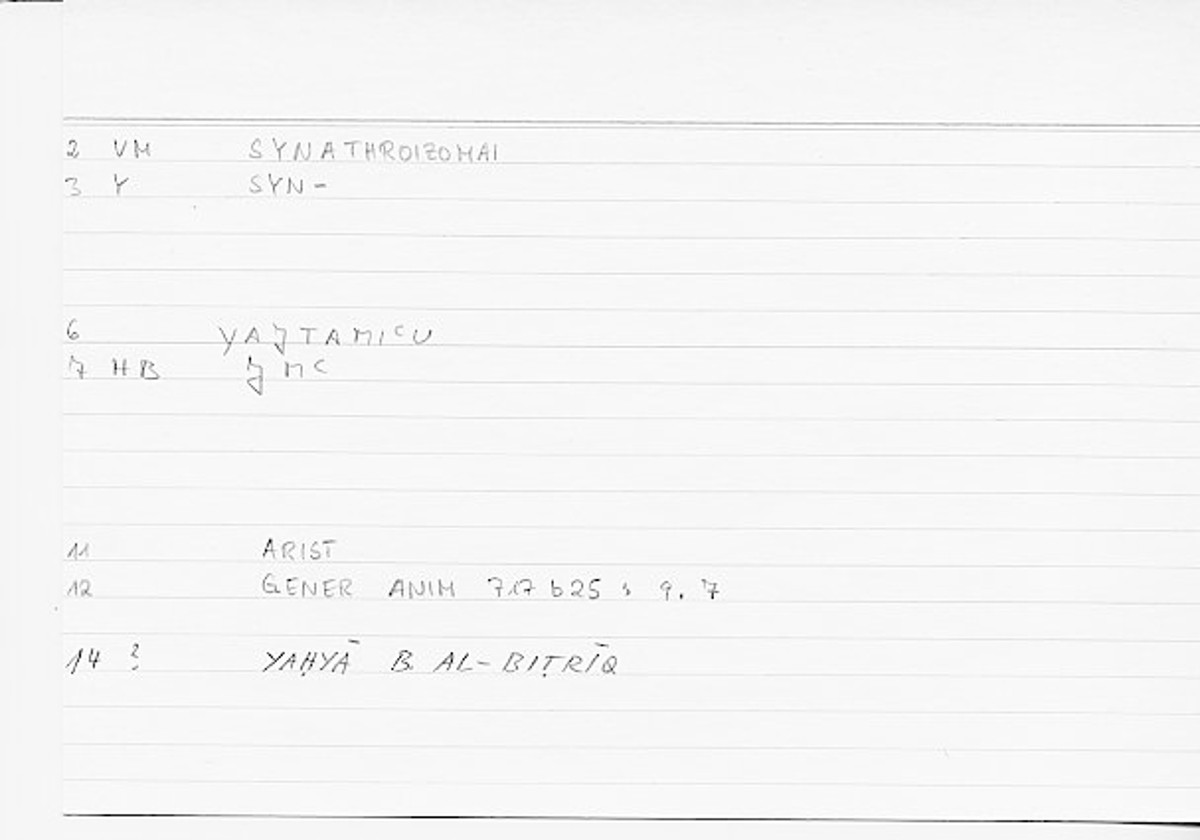 2 VM SYNATHROIZOMAI
3 Y SYN-
6 YAJTAMIᶜU
7 HB JMᶜ
11 ARIST
12 GENER ANIM 717 b25 ; 9. 7
14 ? YAḤYĀ B. AL-BIṬRĪQ